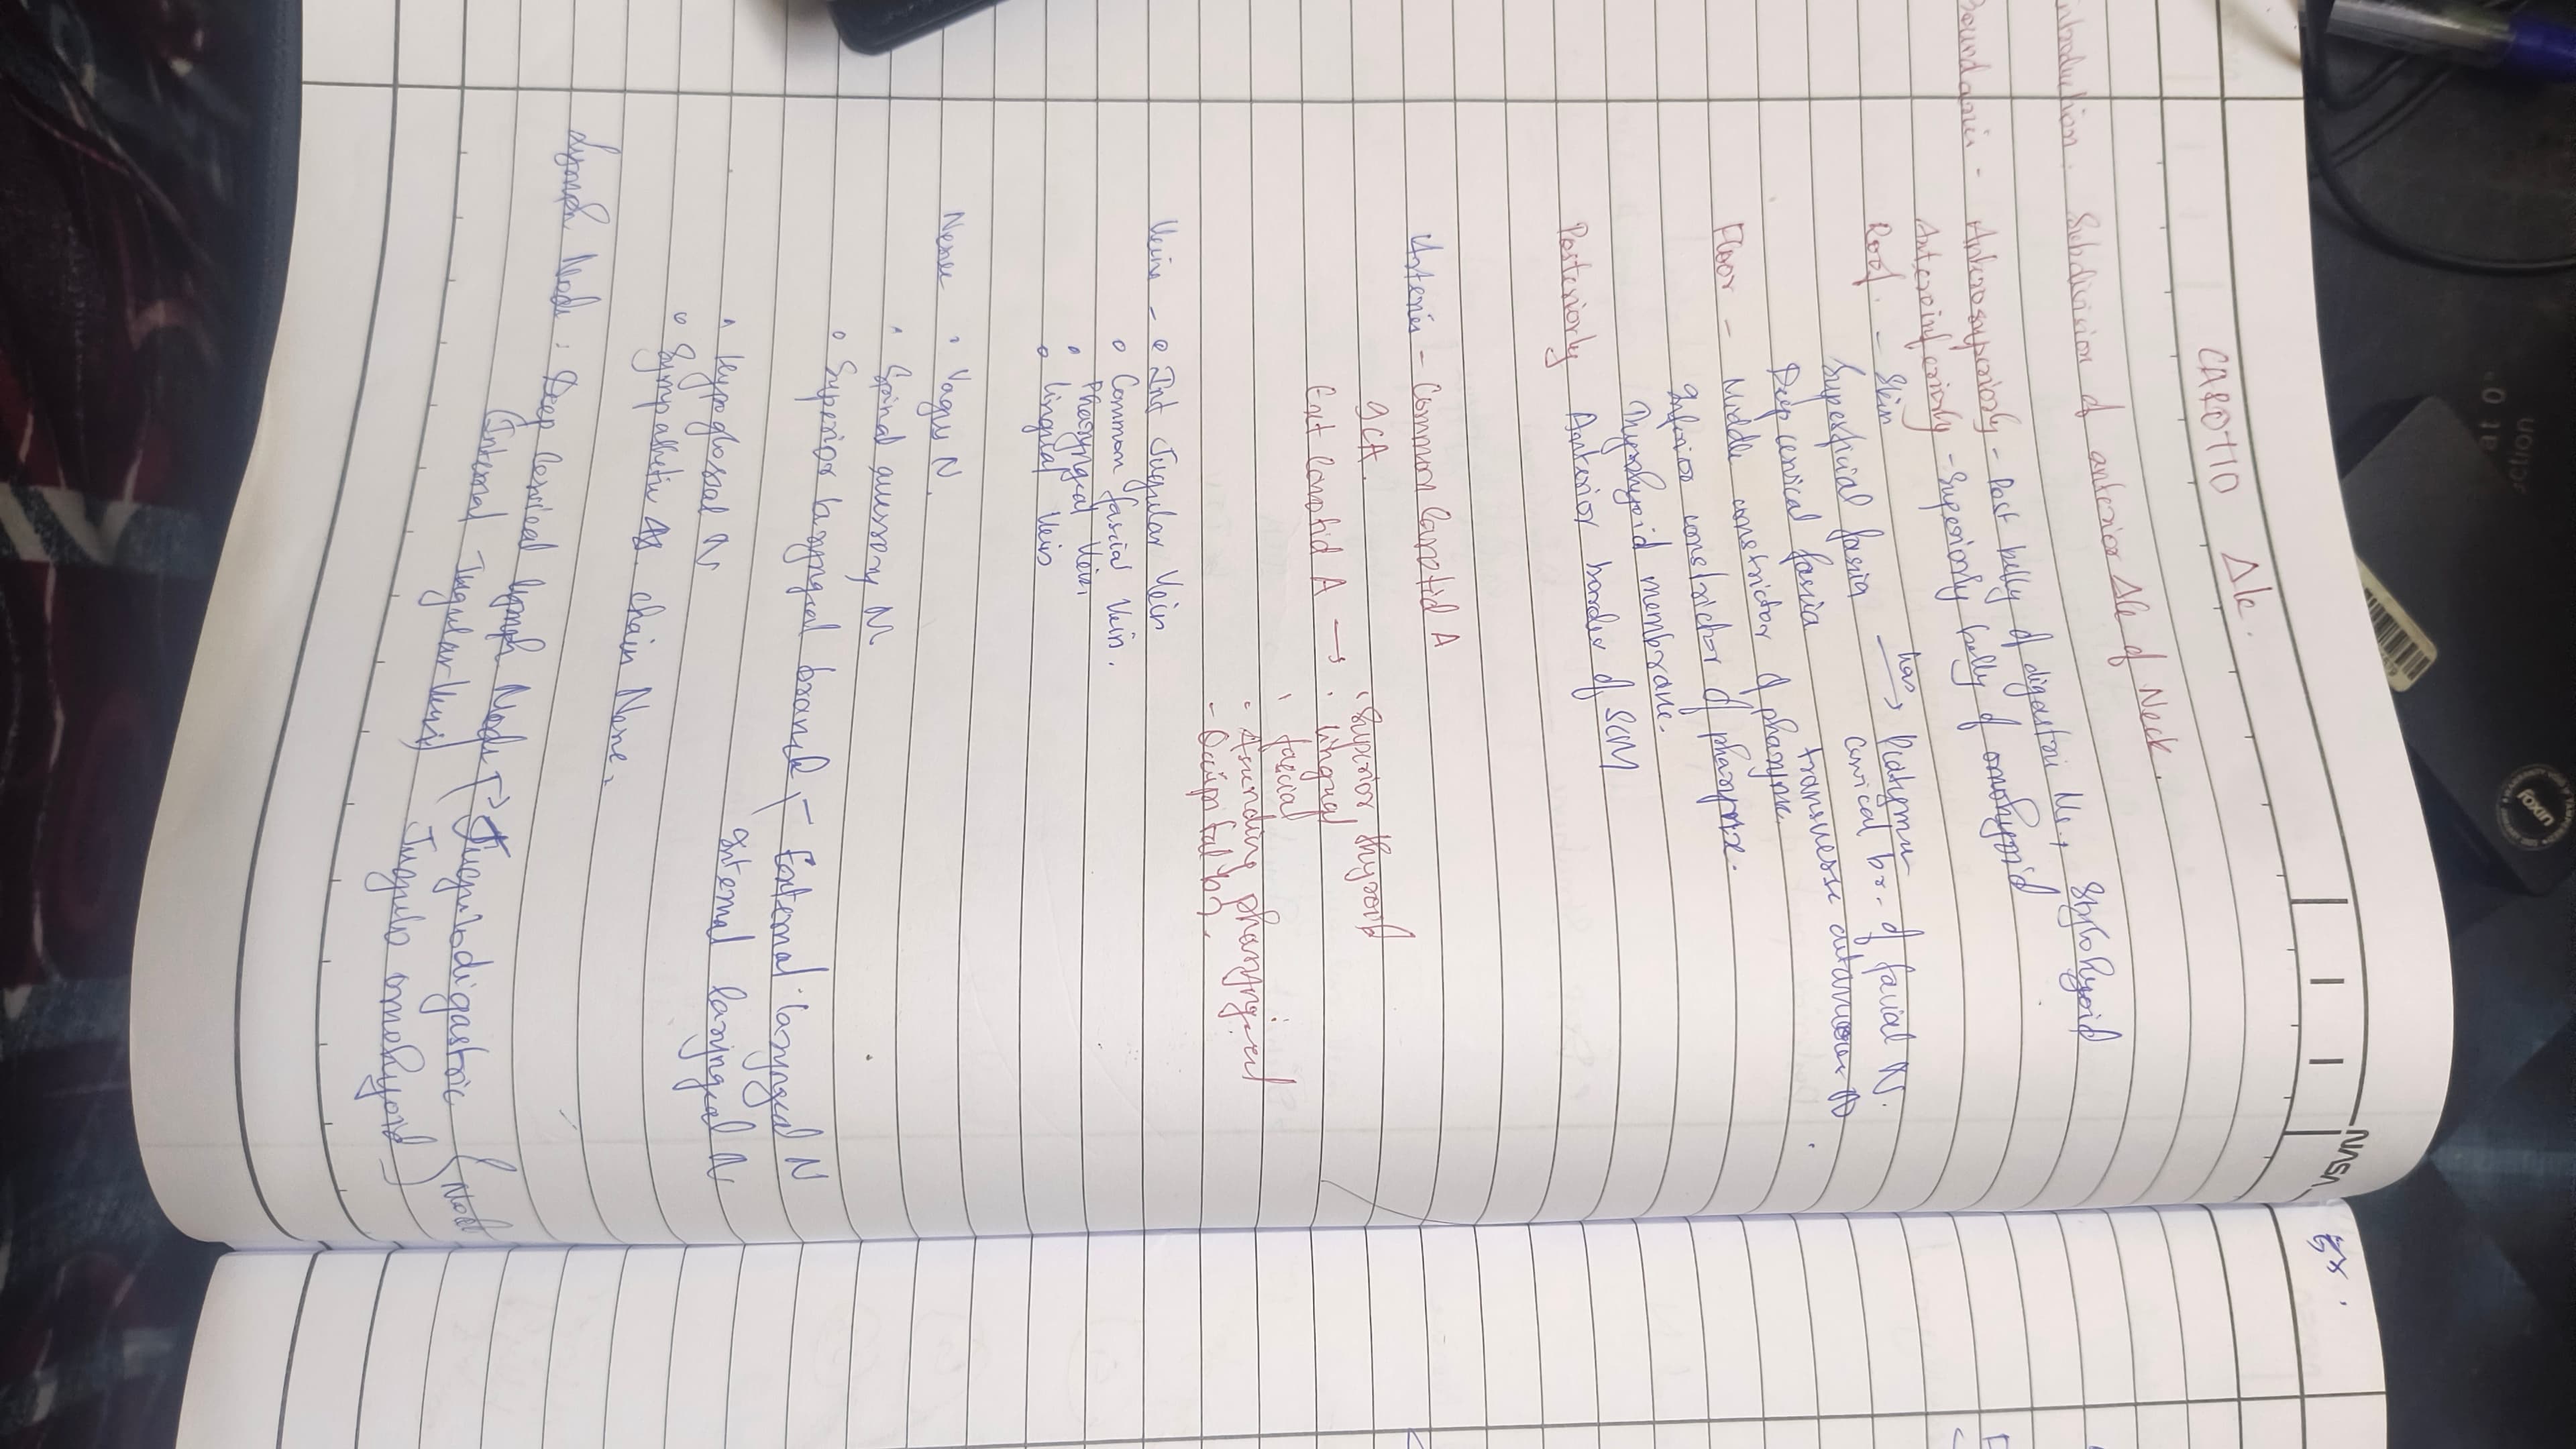 CAROTID Δle.
Introduction. Subdivision of anterior Δle of Neck.
Boundarie - Anterosuperiorly - Post belly of digastric Ms, Stylohyoid
Anteroinferiorly - Superiorly belly of omohyoid
Roof. - Skin
Superficial fascia has → Platysma
cervical br. of facial N.
transverse cutaneous N
Deep cervical fascia
Floor - Middle constrictor of pharynx
Inferior constrictor of pharynx.
Thyrohyoid membrane.
Posteriorly Anterior border of SCM
Arteries - Common Carotid A
ICA.
Ext Carotid A → · Superior thyroid
· lingual
· facial
- Ascending pharyngeal
- Occipital
Veins - Int Jugular Vein
Common facial Vein.
Pharyngeal Vein
lingual Vein
Nerve · Vagus N.
· Spinal accessory N
Superior laryngeal branch - External laryngeal N
Internal laryngeal N
· Hypoglossal N
Sympathetic chain Nerve.
Lymph Node : Deep Cervical lymph Node → Jugulodigastric (Node
(Internal - Jugular Vein) Jugulo omohyoid)
NASA
unxoj
at 0°
section